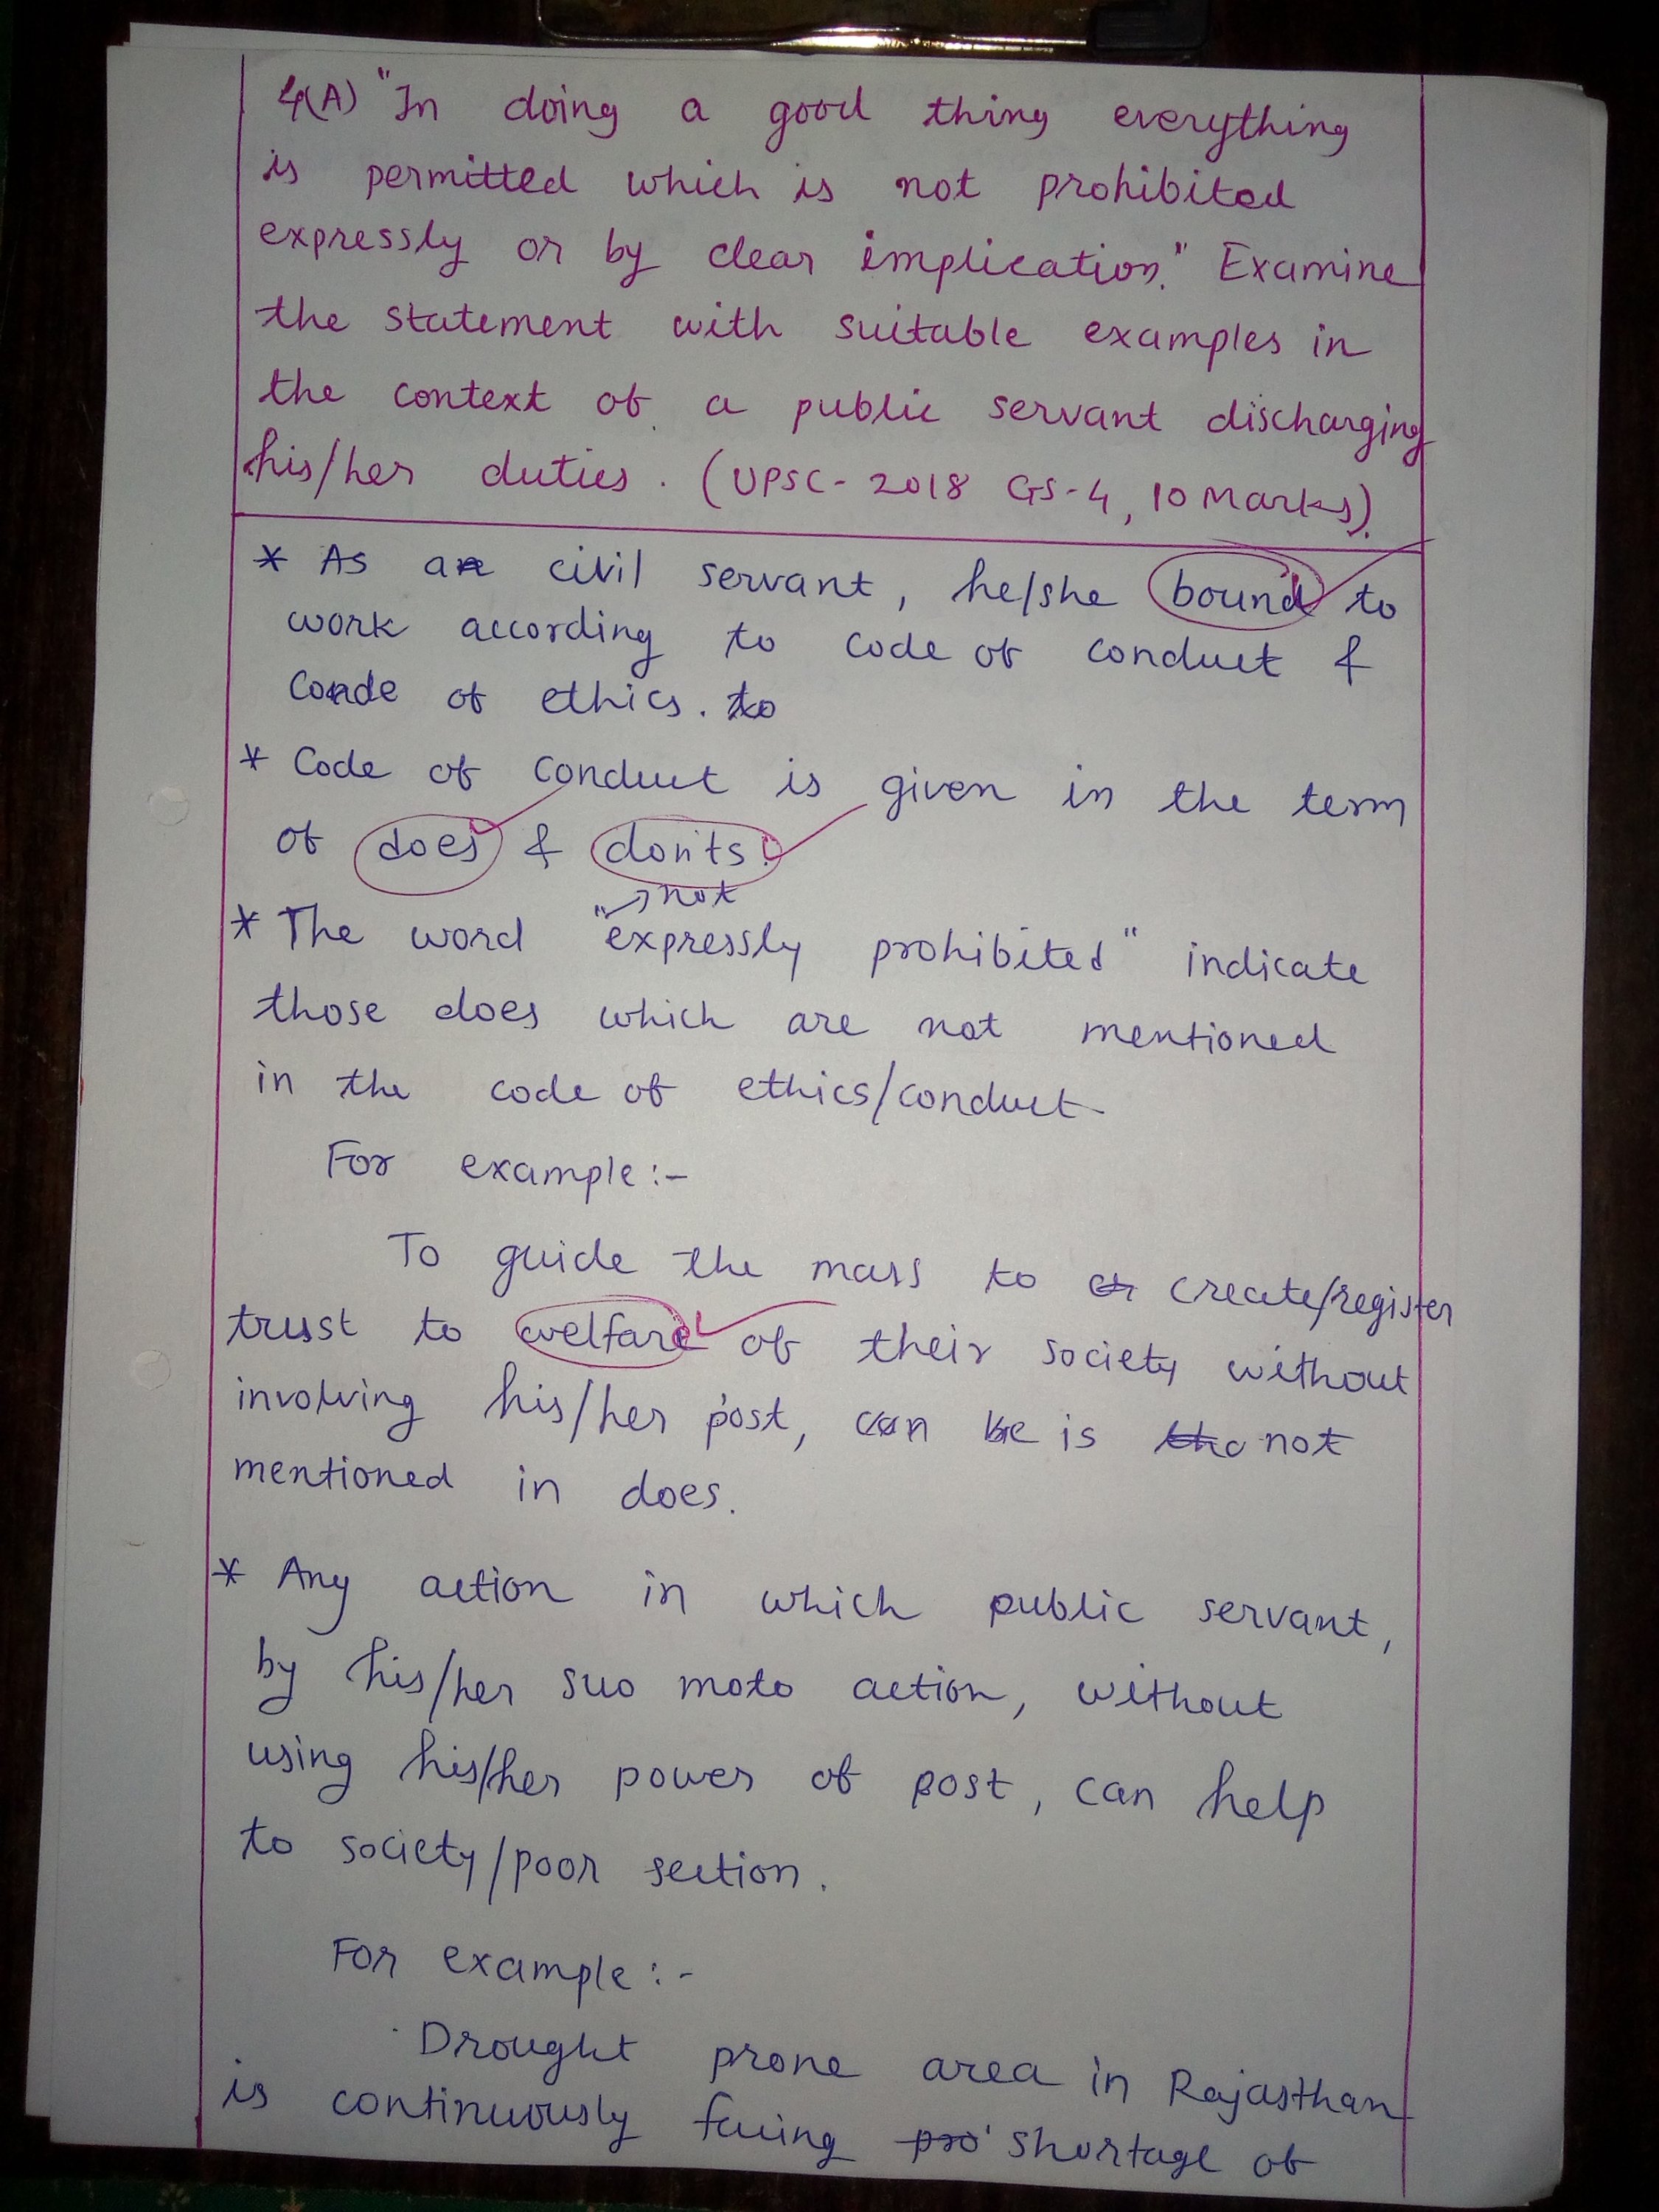 4(A) "In doing a good thing everything
is permitted which is not prohibited
expressly or by clear implication." Examine
the statement with suitable examples in
the context of a public servant discharging
his/her duties. (UPSC-2018 GS-4, 10 Marks).
* As a civil servant, he/she bound to
work according to code of conduct &
Code of ethics. to
* Code of conduct is given in the term
of does & don'ts.
not
* The word "expressly prohibited" indicate
those does which are not mentioned
in the code of ethics/conduct
For example:-
To guide the mass to create/register
trust to welfare of their society without
involving his/her post, can be is not
mentioned in does.
* Any action in which public servant,
by his/her suo moto action, without
using his/her power of post, can help
to society/poor section.
For example:-
Drought prone area in Rajasthan
is continuously facing pro shortage of